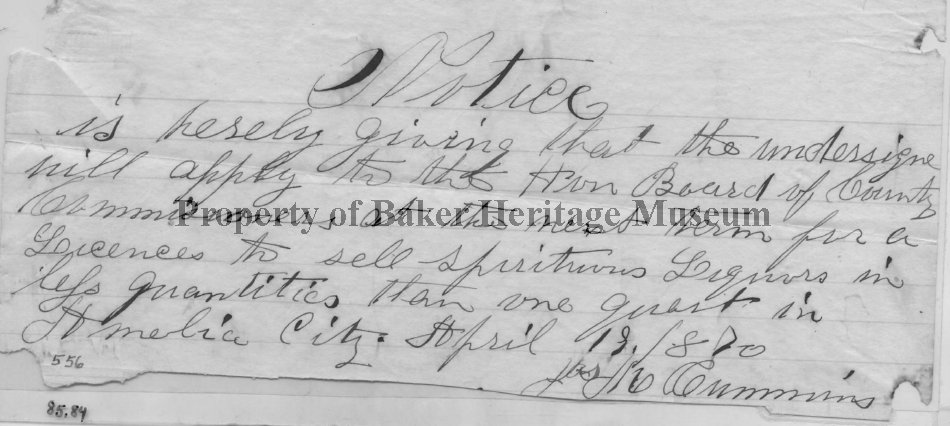 Notice
is hereby giving that the undersigne
will apply to the Hon Board of County
Commissioners at its next term for a
Property of Baker Heritage Museum
Licences to sell spirituous Liquors in
less quantities than one quart in
Amelia City. April 19, 1870
Cummins
556
85.84